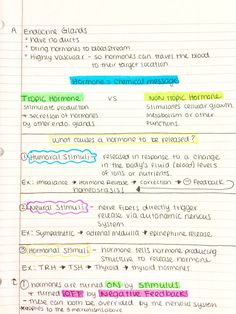 A Endocrine Glands
• have no ducts
• bring hormones to bloodstream
• Highly vascular - so hormones can travel the blood
to their target location
Hormone = chemical message
Tropic Hormone VS Non Tropic Hormone
Stimulate production
→ secretion of hormones
by other endo glands
Stimulates cellular growth,
Metabolism or other
functions
What causes a hormone to be released?
① Humoral Stimuli - released in response to a change
in the body's fluid (blood) levels
of ions or nutrients.
Ex: imbalance → Hormone Release → correction → ⊖ Feedback
homeostasis!
② Neural Stimuli - nerve fibers directly trigger
release via autonomic nervous
system
Ex: Sympathetic → adrenal medulla → epinephrine release
③ Hormonal Stimuli - hormone tells hormone producing
structure to release hormone
Ex: TRH → TSH → Thyroid → thyroid hormones
① hormones are turned ON by Stimulus
→ turned OFF by Negative Feedback
- these can both be overrided by the nervous system
*applies to the 3 mechanisms above